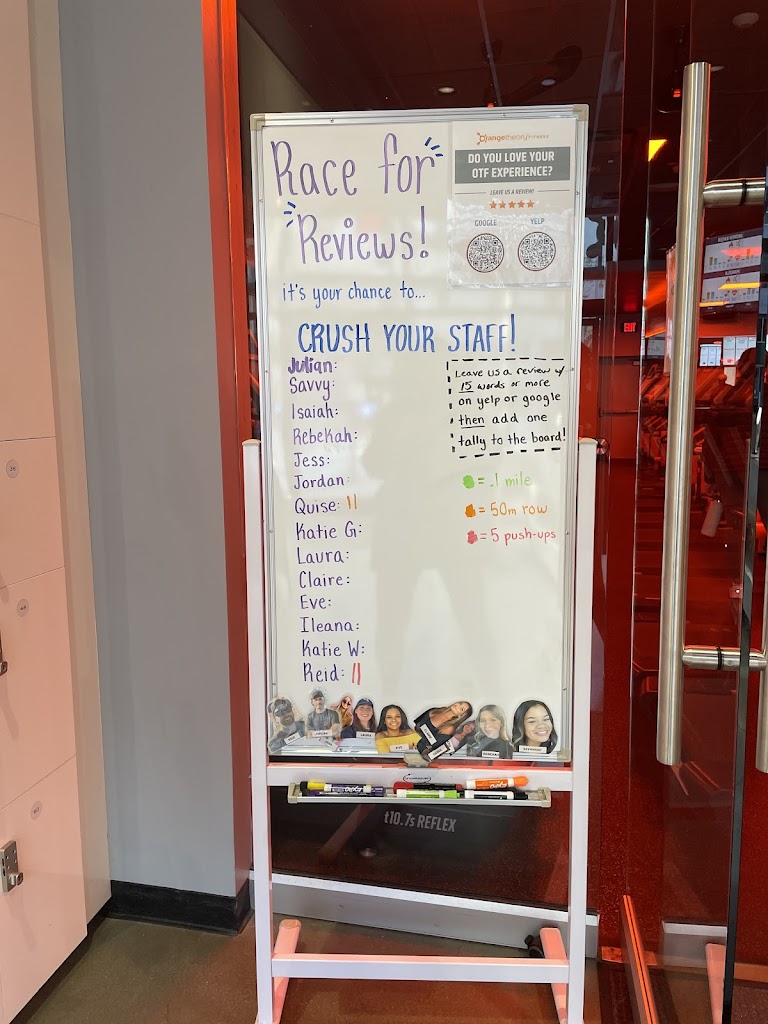 Race for
Reviews!
it's your chance to...
CRUSH YOUR STAFF!
orangetheory FITNESS
DO YOU LOVE YOUR
OTF EXPERIENCE?
LEAVE US A REVIEW!
GOOGLE YELP
Julian:
Savvy:
Isaiah:
Rebekah:
Jess:
Jordan:
Quise: II
Katie G:
Laura:
Claire:
Eve:
Ileana:
Katie W:
Reid: II
Leave us a review w/
15 words or more
on yelp or google
then add one
tally to the board!
= .1 mile
= 50m row
= 5 push-ups
t10.7s REFLEX
EXIT